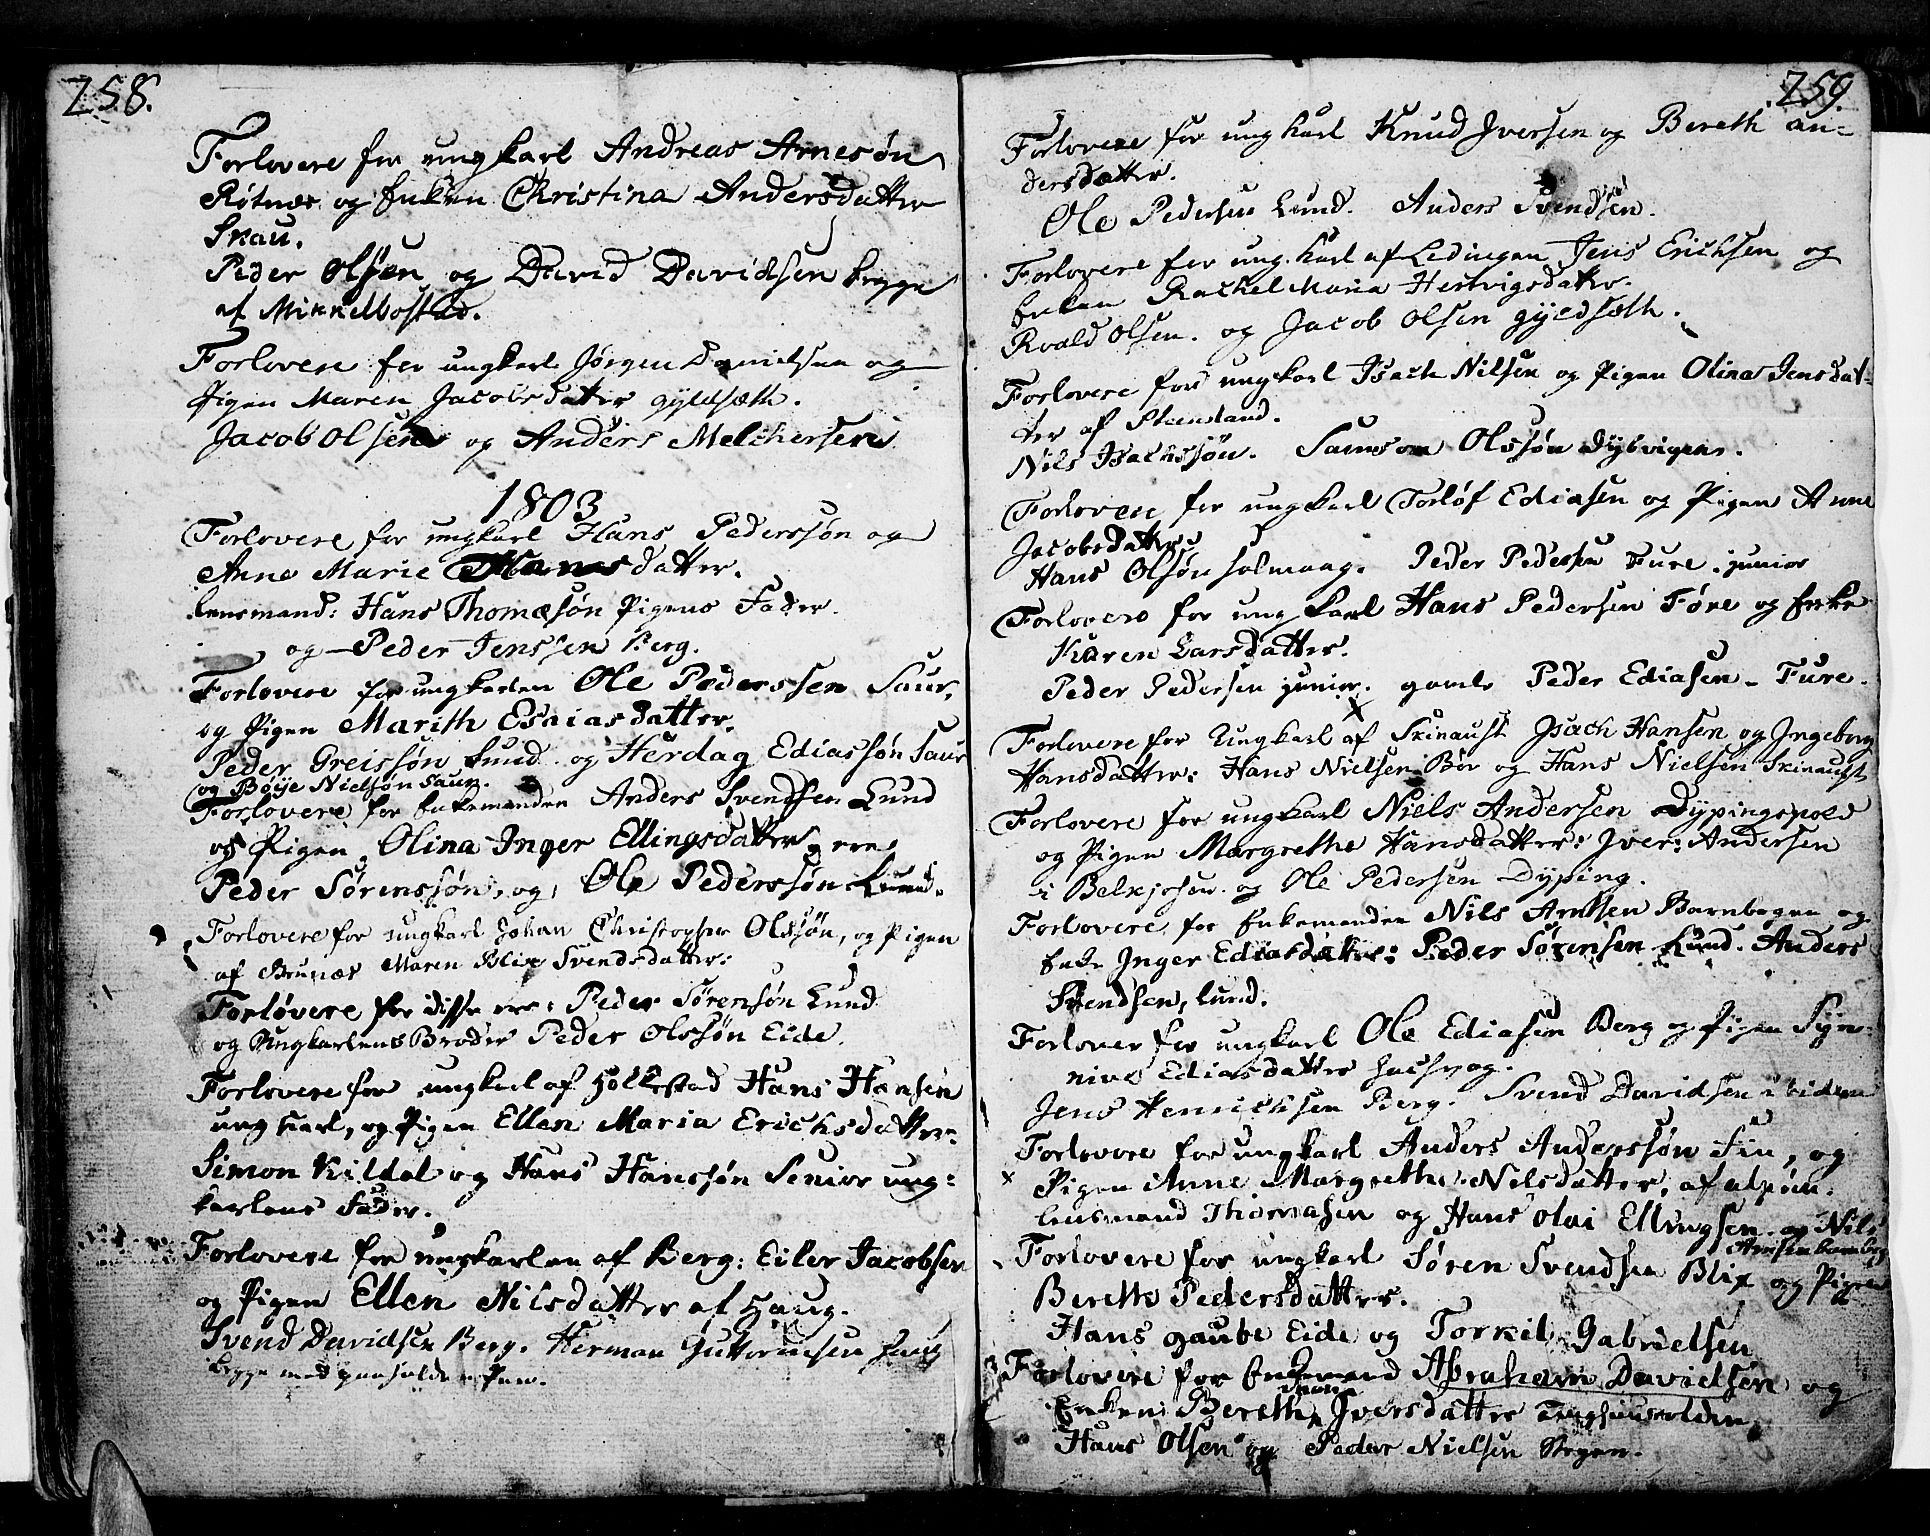 258.
Forlovere for ungkarl Andreas Arnesøn
Røtnæs og Enken Christina Andersdatter
Skau.
Peder Olsøen og David Davidsen begge
af Mikkelbostad.
Forlovere for ungkarl Jørgen Danielsen og
Pigen Maren Jacobsdatter gyldsæth.
Jacob Olsen og Anders Melchersen
1803
Forlovere for ungkarl Hans Pederssøn og
Anne Marie Hansdatter.
Lensmand: Hans Thomæsøn Pigens Fader.
og Peder Jenssen Berg.
Forlovere for ungkarlen Ole Pæderssen Saur,
og Pigen Marith Esaiasdatter.
Peder Greissøn Lund og Herdag Ediassøn Saur
og Böye Nielsøn Saur.
Forlovere for Enkemanden Anders Svendsen Lund
og Pigen Olina Inger Ellingsdatter, ere
Peder Sørenssøn, og Ole Pederssøn Lund.
Forlovere for ungkarl Johan Christopher Olssøn, og Pigen
af Brunæs Maren Blix Svendsdatter:
Forløvere for disse ere: Peder Sørensøn Lund
og Ungkarlens Broder Peder Olssøn Eide.
Forlovere for ungkarl af Holkestad Hans Hansen
ungkarl, og Pigen Ellen Maria Erichsdatter:
Simon Kildal og Hans Hanssøn Senior ung:
karlens Fader.
Forlovere for ungkarlen af Berg: Eiler Jacobsen
og Pigen Ellen Nilsdatter af Haug.
Svend Davidsen Berg. Herman Guttormsen Haug
begge med paaholden Pen.
259.
Forlovere for ungkarl Knud Iversen og Bereth An-
dersdatter.
Ole Pedersen Lund. Anders Svendsen.
Forlovere for ungkarl af Ledingen Jens Erichsen og
Enken Rachel Maria Hertvigsdatter.
Roald Olsen. og Jacob Olsen gyldsæth.
Forlovere for ungkarl Isach Nilsen og Pigen Olina Jensdat-
ter af Steenland.
Nils Isachssøn. Samson Olssøn Dybvigen.
Forlovere for ungkarl Torløf Ediasen og Pigen Anne
Jacobsdatter
Hans Olsøn Holmaag. Peder Pedersen Fure junior
Forlovere for ungkarl Hans Pedersen Føre og Enke
Karen Larsdatter.
Peder Pedersen junior. gamle Peder Ediasen - Fure.
Forlovere for Ungkarl af Skinausk Isach Hansen og Ingeborg
Hansdatter: Hans Nielsen Bør og Hans Nielsen Skinaust
Forlovere for ungkarl Niels Andersen Dypingspold
og Pigen Margrethe Hansdatter: Iver: Andersen
i Belkjosen og Ole Pedersen Dyping.
Forlovere for Enkemanden Nils Arntsen Barnbogen og
Enke Inger Ediasdatter: Peder Sørensen Lund. Anders
Svendsen, Lund.
Forlover for ungkarl Ole Ediasen Berg og Pigen Syn-
nive Ediasdatter
Jens Henrichsen Berg. Svend Davidsen ibidem
Forlovere for ungkarl Anders Anderssøn Fin, og
Pigen Anne Margrethe Nelsdatter, af
Lensmand Thomasen og Hans Olai Ellingsen og Nils
Arnsen Barnbog
Forlovere for ungkarl Søren Svendsen Blix og Pigen
Berethe Pedersdatter.
Hans gaube Eide og Torkil Gabrielsen
Forlovere for Enkemand Abraham Davidsøn og
Enken Bereth Iversdatter
Hans Olsen og Peder Nielsen Stegen.